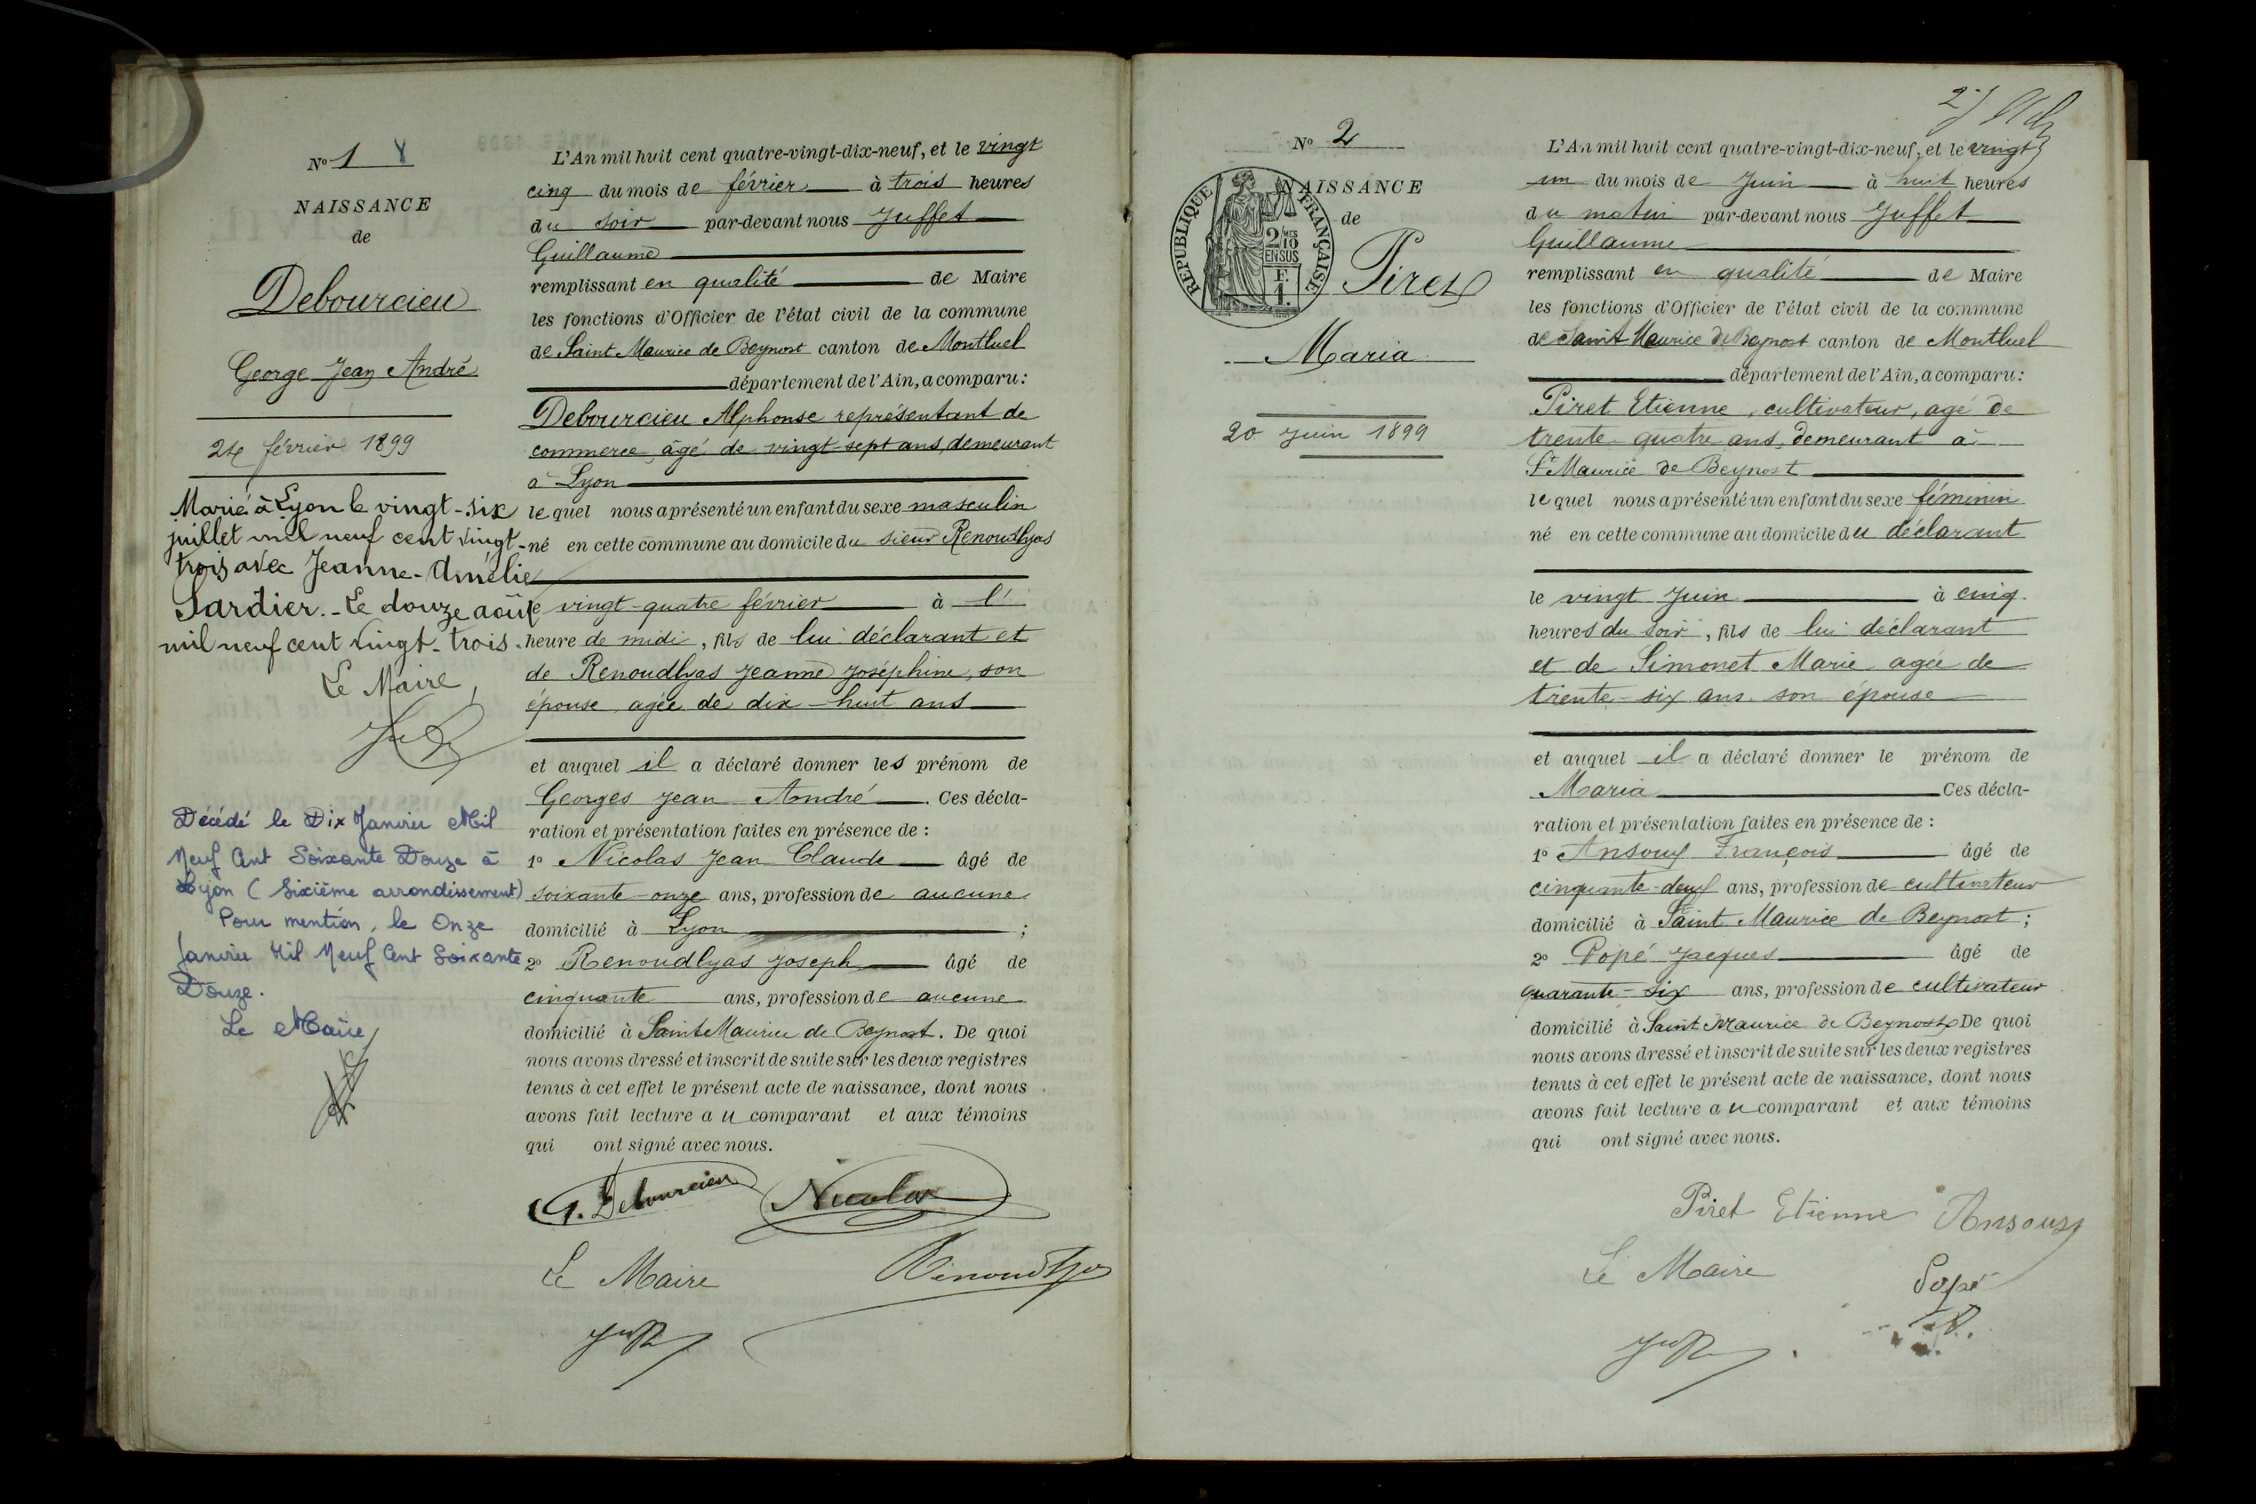 No 1
NAISSANCE
de
Debourcieu
George Jean André
24 février 1899
Marié à Lyon le vingt-six
juillet mil neuf cent vingt-
trois avec Jeanne-Amélie
Sardier.- Le douze août
mil neuf cent vingt-trois.
Le Maire,
Décédé le Dix Janvier Mil
Neuf Cent Soixante Douze à
Lyon (Sixième arrondissement)
Pour mention, le Onze
Janvier Mil Neuf Cent Soixante
Douze.
Le Maire,
L'An mil huit cent quatre-vingt-dix-neuf, et le vingt
cinq du mois de février à trois heures
du soir par-devant nous Juffet
Guillaume
remplissant en qualité de Maire
les fonctions d'Officier de l'état civil de la commune
de Saint Maurice de Beynost canton de Montluel
département de l'Ain, a comparu:
Debourcieu Alphonse représentant de
commerce âgé de vingt-sept ans, demeurant
à Lyon
lequel nous a présenté un enfant du sexe masculin
né en cette commune au domicile du sieur Renoudlyas
le vingt-quatre février à l'
heure de midi, fils de lui déclarant et
de Renoudlyas Jeanne Joséphine, son
épouse agée de dix-huit ans
et auquel il a déclaré donner les prénom de
Georges Jean André. Ces décla-
ration et présentation faites en présence de :
1o Nicolas Jean Claude âgé de
soixante-onze ans, profession de aucune
domicilié à Lyon ;
2o Renoudlyas Joseph âgé de
cinquante ans, profession de aucune
domicilié à Saint Maurice de Beynost. De quoi
nous avons dressé et inscrit de suite sur les deux registres
tenus à cet effet le présent acte de naissance, dont nous
avons fait lecture au comparant et aux témoins
qui ont signé avec nous.
Debourcieu Nicolas
Le Maire Renoudlyas
2
No 2
NAISSANCE
de
RÉPUBLIQUE FRANÇAISE
2/10 MES
EN SUS
F.
1.
Piret
Maria
20 Juin 1899
L'An mil huit cent quatre-vingt-dix-neuf, et le vingt
un du mois de Juin à huit heures
du matin par-devant nous Juffet
Guillaume
remplissant en qualité de Maire
les fonctions d'Officier de l'état civil de la commune
de Saint Maurice de Beynost canton de Montluel
département de l'Ain, a comparu:
Piret Etienne, cultivateur, agé de
trente-quatre ans, demeurant à
St Maurice de Beynost
lequel nous a présenté un enfant du sexe féminin
né en cette commune au domicile du déclarant
le vingt Juin à cinq
heures du soir, fils de lui déclarant
et de Simonet Marie agée de
trente-six ans son épouse
et auquel il a déclaré donner le prénom de
Maria Ces décla-
ration et présentation faites en présence de :
1o Ansoux François âgé de
cinquante-deux ans, profession de cultivateur
domicilié à Saint Maurice de Beynost ;
2o Popé Jacques âgé de
quarante-six ans, profession de cultivateur
domicilié à Saint Maurice de Beynost De quoi
nous avons dressé et inscrit de suite sur les deux registres
tenus à cet effet le présent acte de naissance, dont nous
avons fait lecture au comparant et aux témoins
qui ont signé avec nous.
Piret Etienne Ansoux
Le Maire Popé